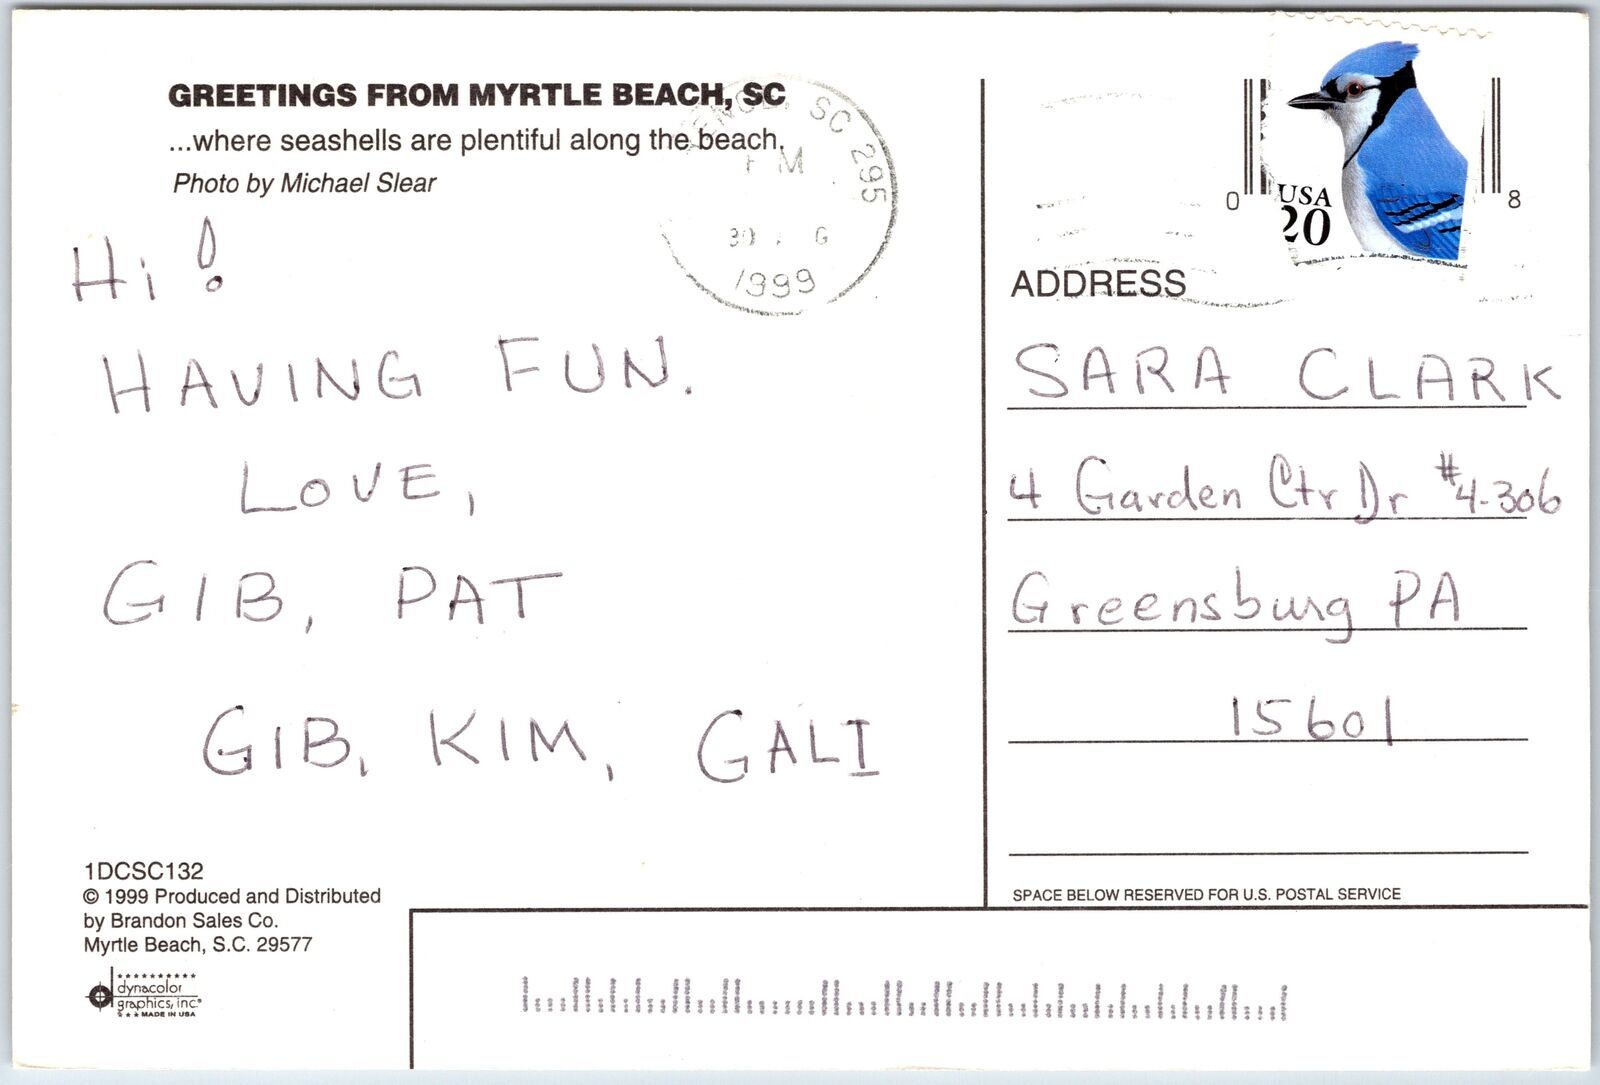 GREETINGS FROM MYRTLE BEACH, SC
...where seashells are plentiful along the beach.
Photo by Michael Slear
SC 295
PM
30
1999
0
8
USA
20
Hi!
HAVING FUN.
LOVE,
GIB, PAT
GIB, KIM, GALI
ADDRESS
SARA CLARK
4 Garden Ctr Dr #4-306
Greensburg PA
15601
SPACE BELOW RESERVED FOR U.S. POSTAL SERVICE
1DCSC132
© 1999 Produced and Distributed
by Brandon Sales Co.
Myrtle Beach, S.C. 29577
dynacolor
graphics, inc.®
MADE IN USA